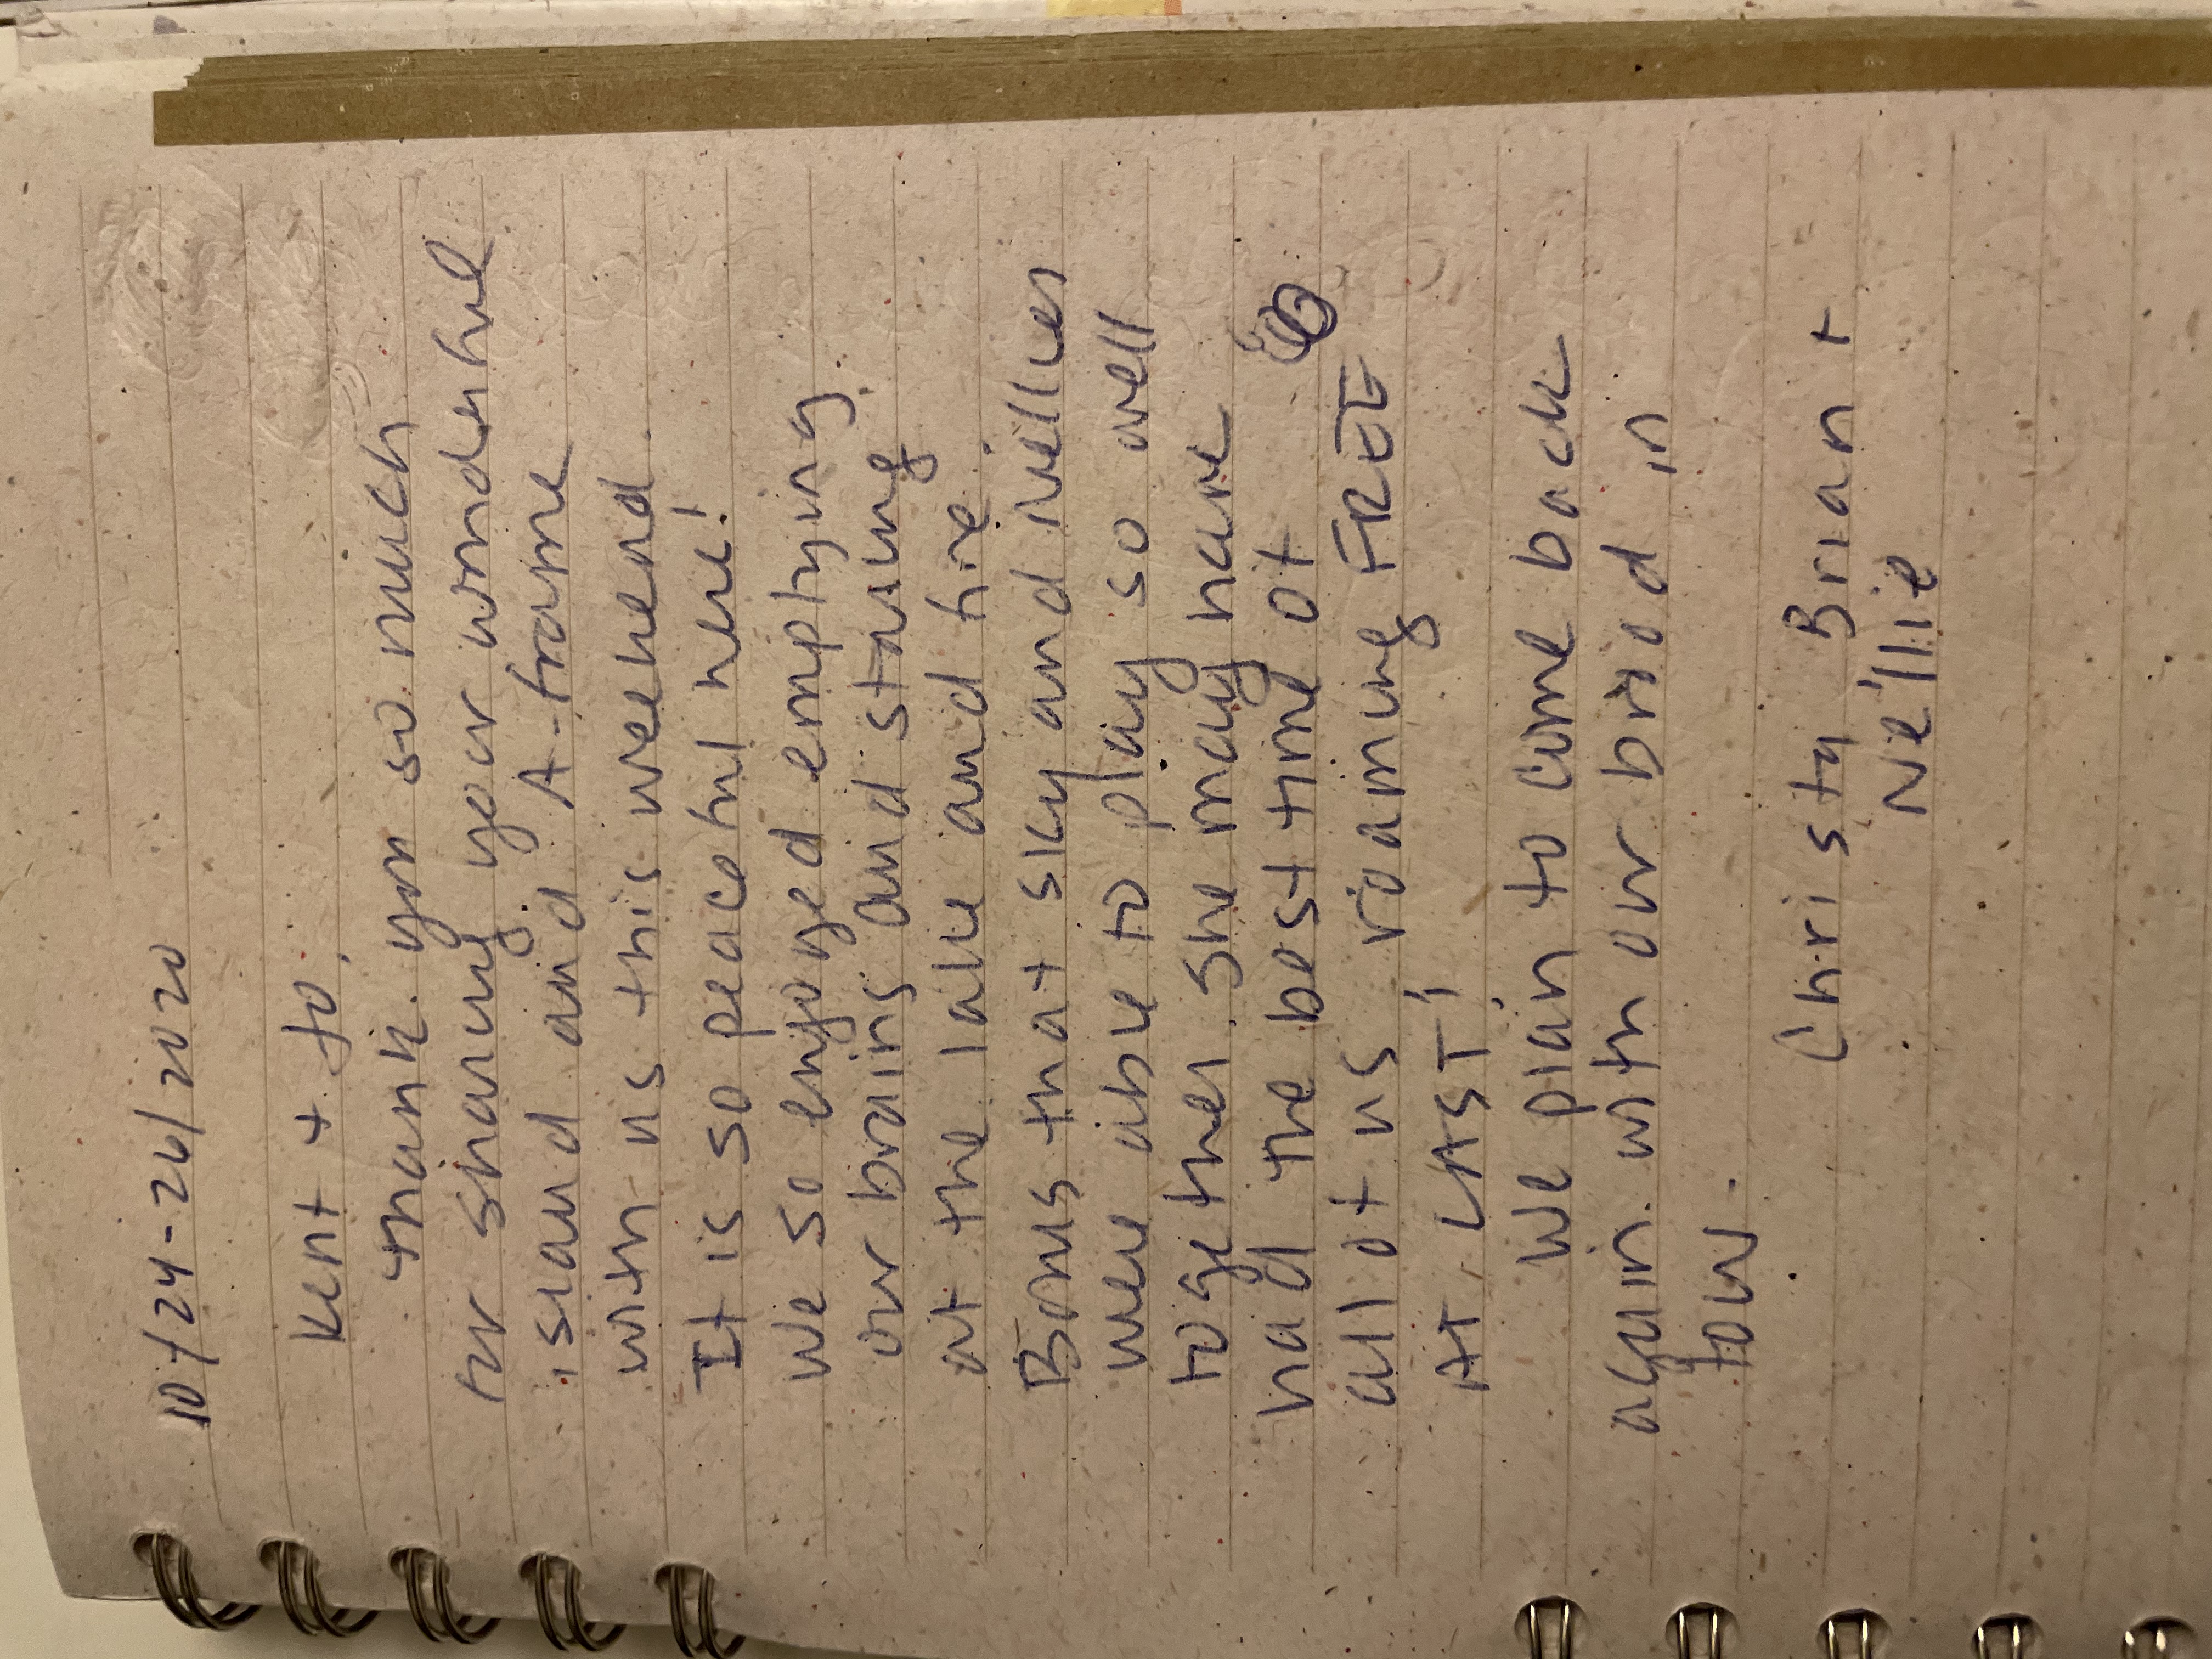 10/24-26/2020
Kent + Jo,
Thank you so much
for sharing your wonderful
island and A-frame
with us this weekend.
It is so peaceful here!
We so enjoyed emptying
our brains and staring
at the lake and fire.
Bonus that Sky and Nellie
were able to play so well
together. She may have
had the best time of
all of us roaming FREE
AT LAST!
We plan to come back
again with our brood in
tow.
Christy Brian +
Nellie